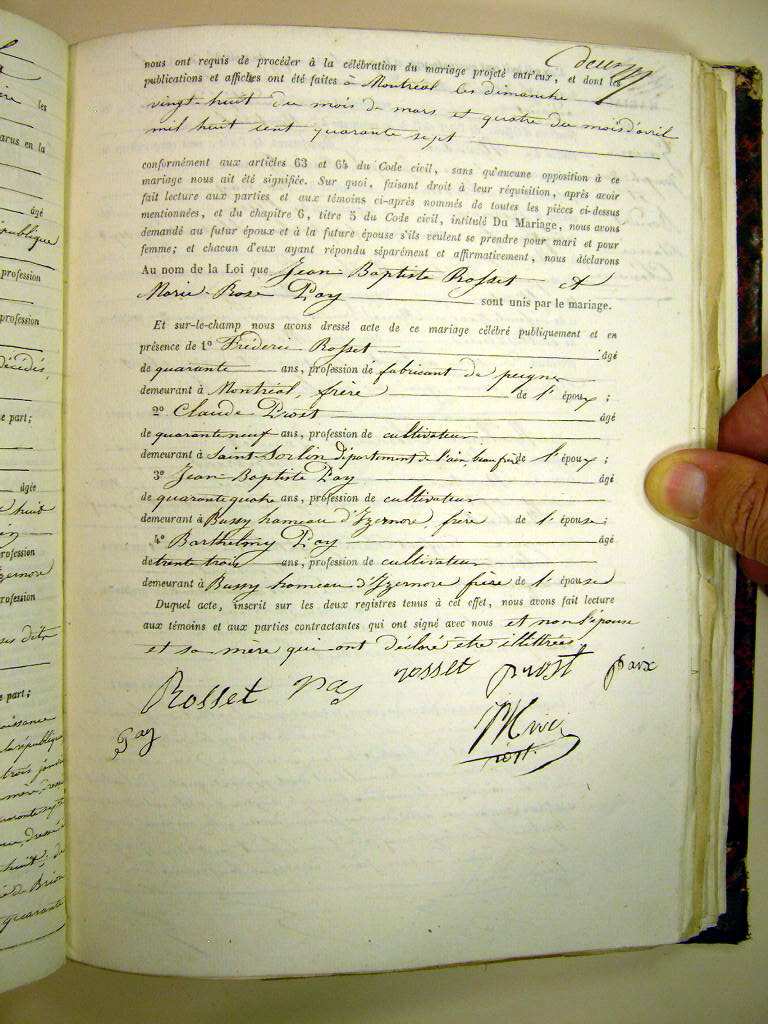 nous ont requis de procéder à la célébration du mariage projeté entr'eux, et dont les
publications et affiches ont été faites à Montréal les dimanche
vingt-huit du mois de mars et quatre du mois d'avril
mil huit cent quarante sept
conformément aux articles 63 et 64 du Code civil, sans qu'aucune opposition à ce
mariage nous ait été signifiée. Sur quoi, faisant droit à leur réquisition, après avoir
fait lecture aux parties et aux témoins ci-après nommés de toutes les pièces ci-dessus
mentionnées, et du chapitre 6, titre 5 du Code civil, intitulé Du Mariage, nous avons
demandé au futur époux et à la future épouse s'ils veulent se prendre pour mari et pour
femme; et chacun d'eux ayant répondu séparément et affirmativement, nous déclarons
Au nom de la Loi que Jean-Baptiste Rosset et
Marie-Rose Pay sont unis par le mariage.
Et sur-le-champ nous avons dressé acte de ce mariage célébré publiquement et en
présence de 1º Fréderic Rosset âgé
de quarante ans, profession de fabricant de peigne
demeurant à Montréal, frère de l'époux;
2º Claude Prost âgé
de quarante neuf ans, profession de cultivateur
demeurant à Saint-Sorlin département de l'ain, beau frère de l'époux;
3º Jean-Baptiste Pay âgé
de quarante quatre ans, profession de cultivateur
demeurant à Bussy hameau d'Izernore, frère de l'épouse;
4º Barthelmy Pay âgé
de trente trois ans, profession de cultivateur
demeurant à Bussy hameau d'Izernore frère de l'épouse
Duquel acte, inscrit sur les deux registres tenus à cet effet, nous avons fait lecture
aux témoins et aux parties contractantes qui ont signé avec nous et non l'épouse
et sa mère qui ont déclaré être illittrées
Rosset Pay rosset prost paix
Pay
prost.
les
arus en la
âgé
république
profession
profession
décédés,
e part;
âgée
huit
rofession
zernore
rofession
e part;
naissance
la république
trois
quarante